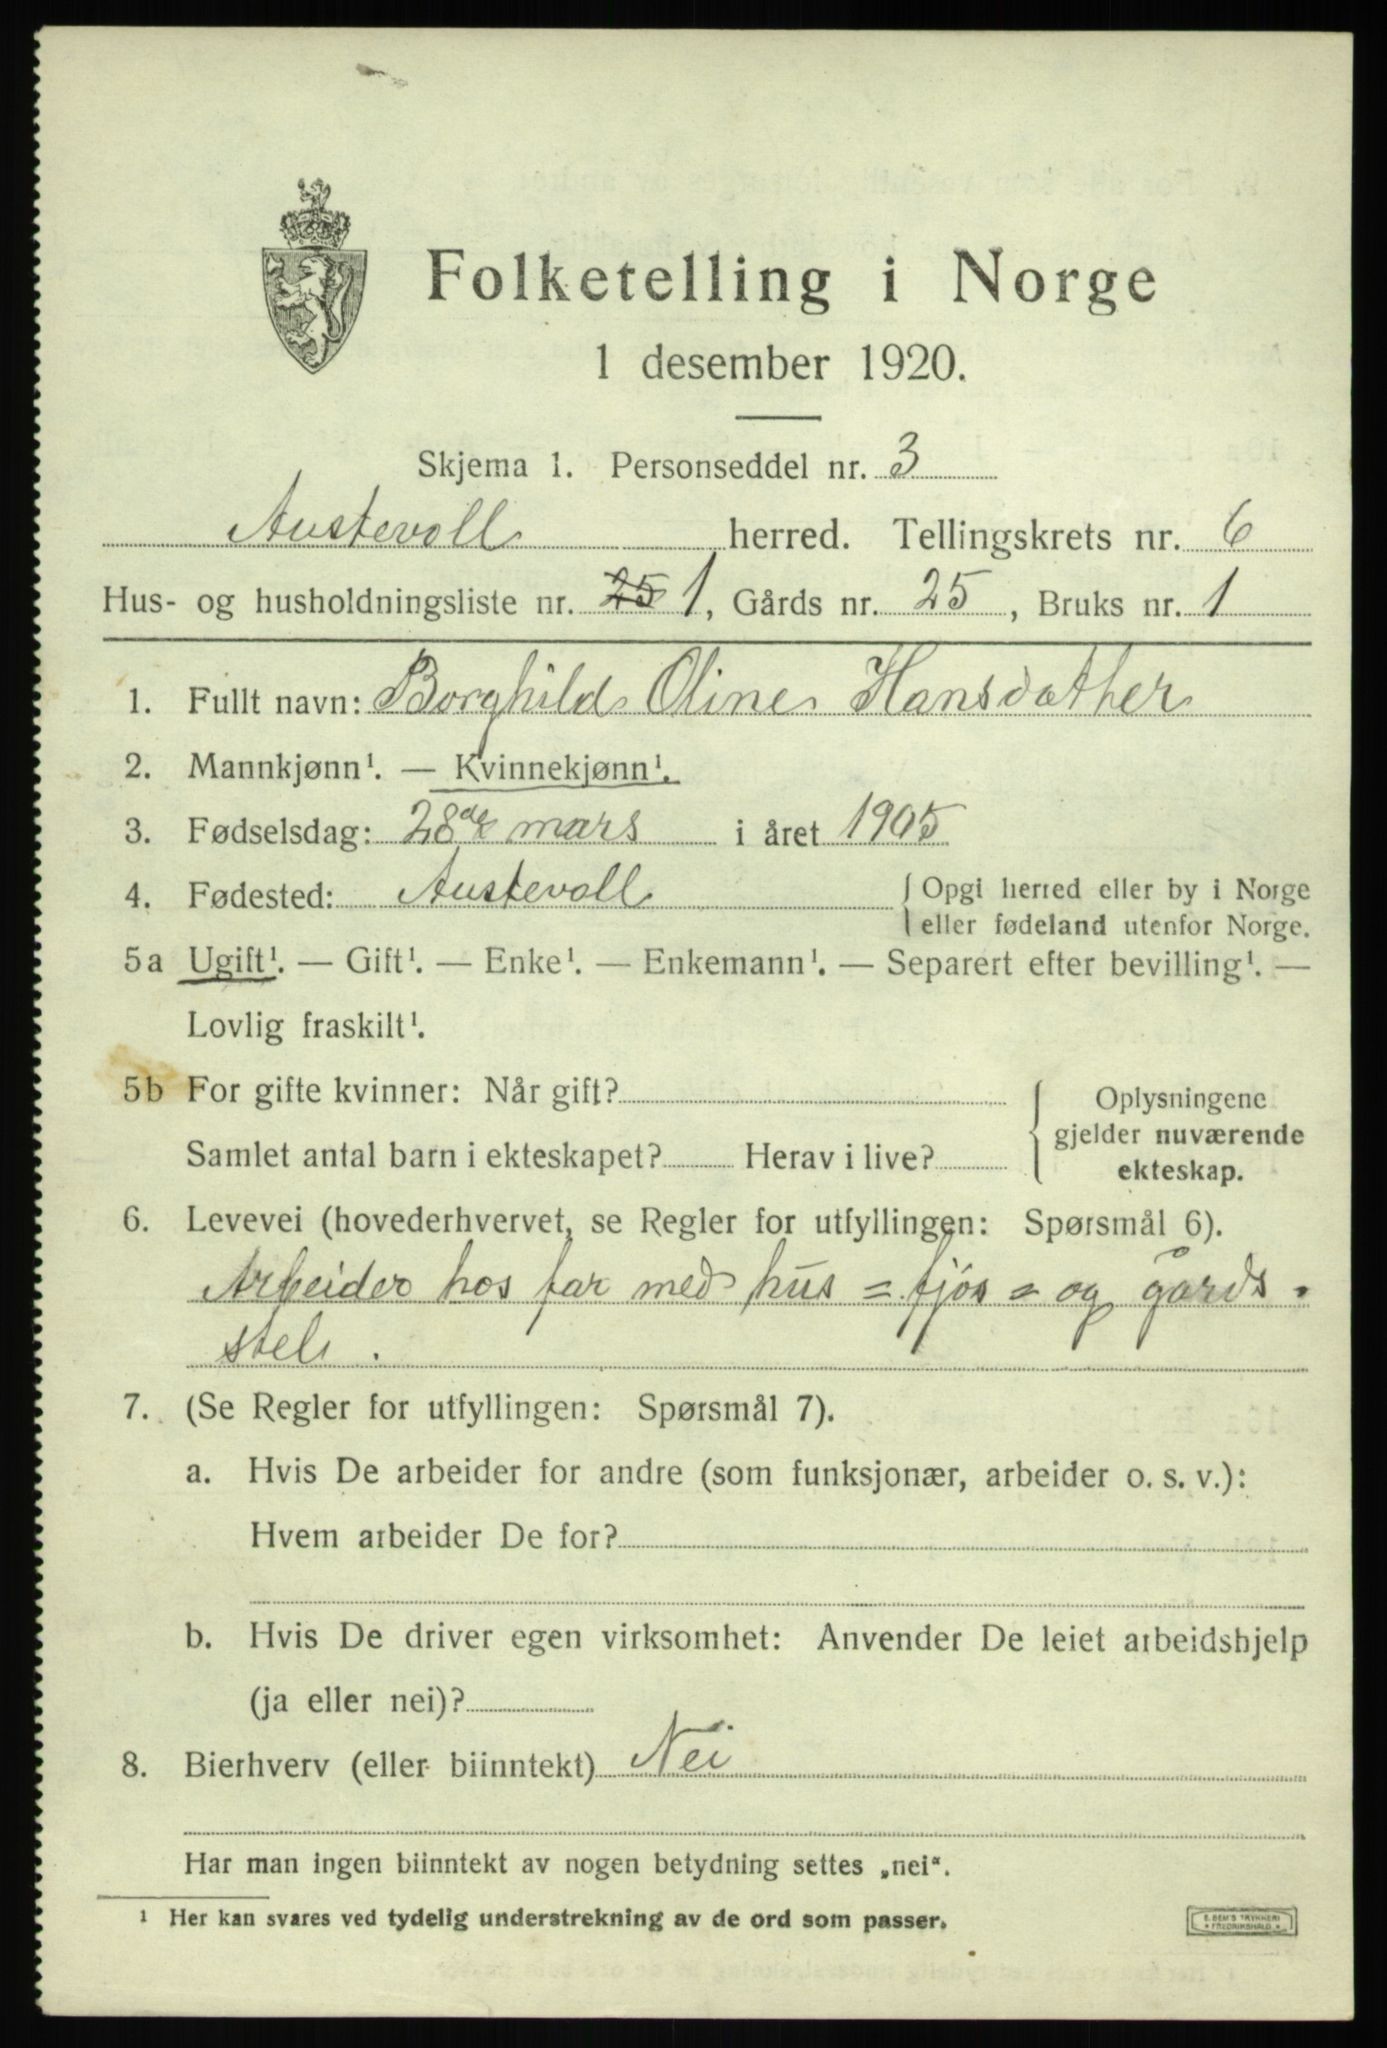 Folketelling i Norge
1 desember 1920.
Skjema 1. Personseddel nr. 3
Austevoll herred. Tellingskrets nr. 6
Hus- og husholdningsliste nr. 25 1, Gårds nr. 25, Bruks nr. 1
1. Fullt navn: Borghild Oline Hansdather
2. Mannkjønn¹. — Kvinnekjønn¹.
3. Fødselsdag: 28de mars i året 1905
4. Fødested: Austevoll { Opgi herred eller by i Norge
eller fødeland utenfor Norge.
5a Ugift¹. — Gift¹. — Enke¹. — Enkemann¹. — Separert efter bevilling¹. —
Lovlig fraskilt¹.
5b For gifte kvinner: Når gift? { Oplysningene
gjelder nuværende
Samlet antal barn i ekteskapet? Herav i live?
ekteskap.
6. Levevei (hovederhvervet, se Regler for utfyllingen: Spørsmål 6).
Arbeider hos far med hus = fjøs = og gårds -
stel .
7. (Se Regler for utfyllingen: Spørsmål 7).
a. Hvis De arbeider for andre (som funksjonær, arbeider o. s. v.):
Hvem arbeider De for?
b. Hvis De driver egen virksomhet: Anvender De leiet arbeidshjelp
(ja eller nei)?
8. Bierhverv (eller biinntekt) Nei
Har man ingen biinntekt av nogen betydning settes „nei“.
¹ Her kan svares ved tydelig understrekning av de ord som passer.
E. SEM'S TRYKKERI
* FREDRIKSHALD *